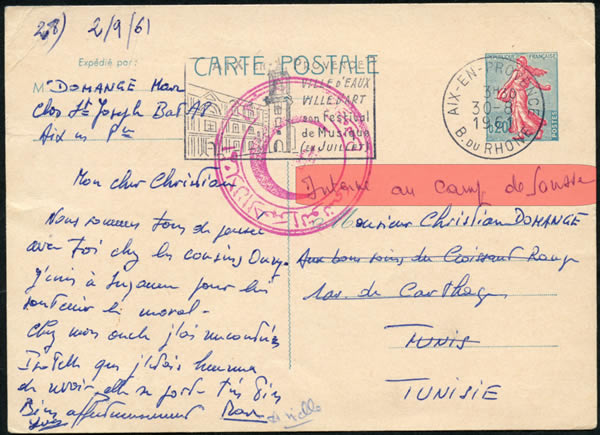 28) 2/9/61
CARTE POSTALE
Expédié par :
Mr DOMANGE Marc
Clos St Joseph Bat A8
Aix en Pce
AIX EN PROVENCE
VILLE D'EAUX
VILLE D'ART
son Festival
de Musique
(EN JUILLET)
AIX-EN-PROVENCE
30-8
1961
B. DU RHONE
REPUBLIQUE FRANÇAISE
0,20
POSTES
Mon cher Christian
Nous sommes tous de pensée
avec toi chez les cousins
J'écris à Suzanne pour lui
soutenir le moral.
Chez mon oncle j'ai rencontré
que j'étais heureux
de revoir, elle se porte très bien
Bien affectueusement Marc
Interné au camp de
Monsieur Christian DOMANGE
Aux bons soins du Croissant Rouge
1 av. de Carthage
TUNIS
TUNISIE